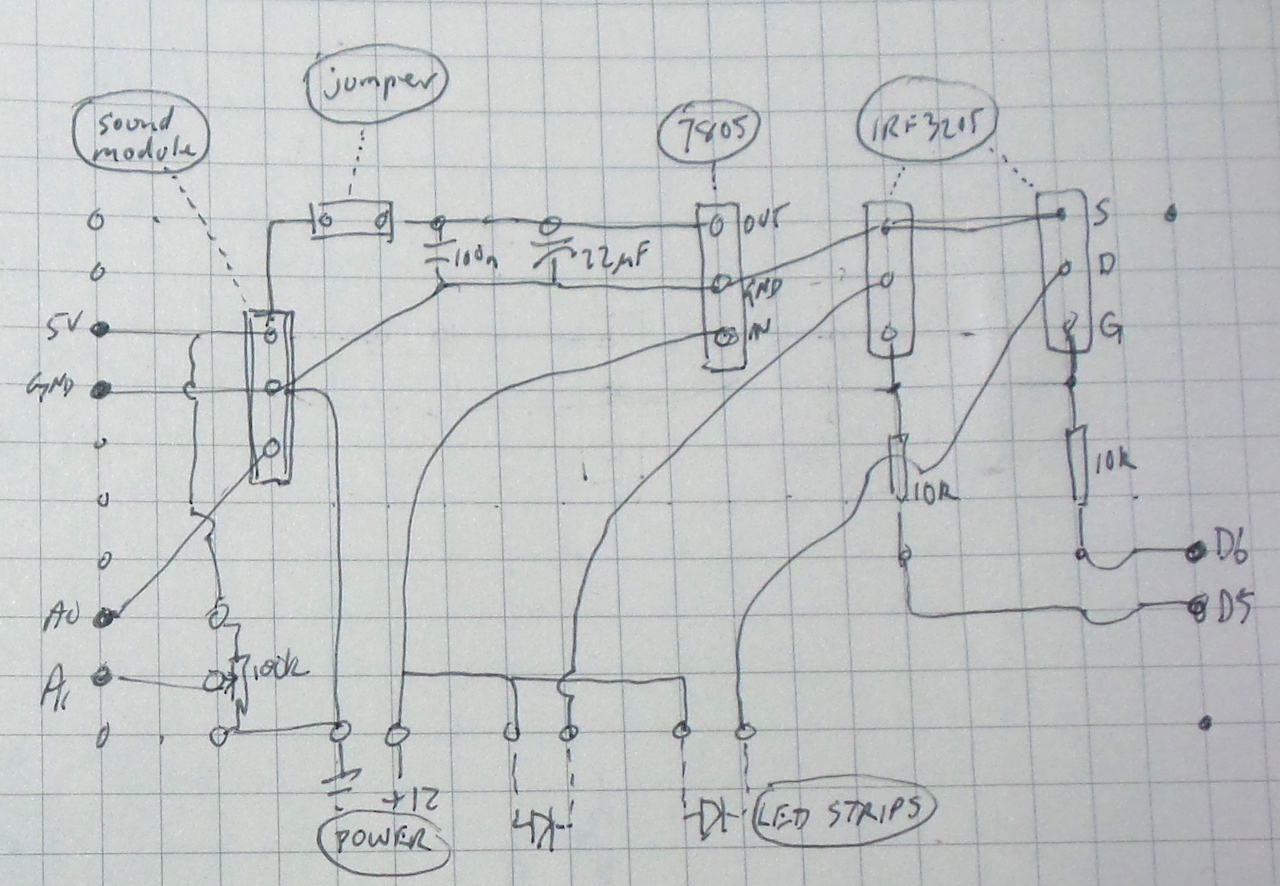 jumper
sound
module
7805
IRF3205
OUT
S
100n
22µF
GND
D
5V
IN
G
GND
10k
10k
D6
A0
D5
A1
100k
+12
LED STRIPS
POWER